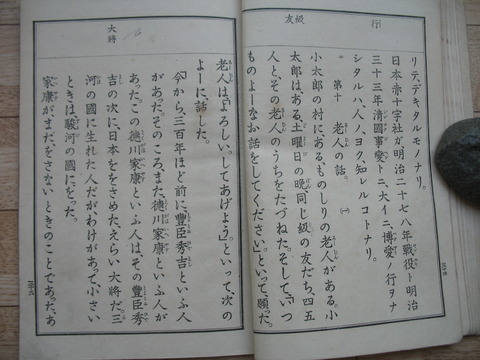 行
級友
リテ、デキタルモノナリ。
日本赤十字社ガ明治二十七八年戰役ト明治
三十三年淸國事變トニ、大イニ、博愛ノ行ヲナ
シタルハ、人ノ、ヨク知レルコトナリ。
第十 老人の話。(一)
小太郎の村にある、ものしりの老人がある。小
太郎は、ある、土曜日の晩、同じ級の友だち、四五
人と、その老人のうちをたづねた。そして、「いつ
ものよーなお話をしてください。」といって願った。
大將
老人は「よろしい。してあげよう。」といって、次の
よーに、話した。
「今から、三百年ほど前に、豐臣秀吉といふ人
があった。そのころ、また、德川家康といふ人が
あった。この德川家康といふ人は、その豐臣秀
吉の次に、日本ををさめた、えらい大將だ。三
河の國に生れた人だがわけがあって、小さい
ときは駿河の國にをった。
家康が、まだ、をさないときのことであった。あ